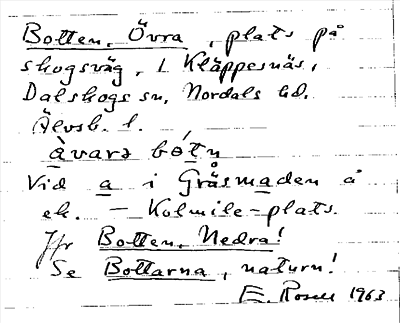 Botten, Övra, plats på
skogsväg, i Kläppesnäs,
Dalskogs sn, Nordals hd.
Älvsb. l.
àvarə bótn̥
Vid a i Gräsmaden å
ek. – Kolmile-plats.
Jfr Botten, Nedra!
Se Bottarna, naturn!
E. Rosell 1963